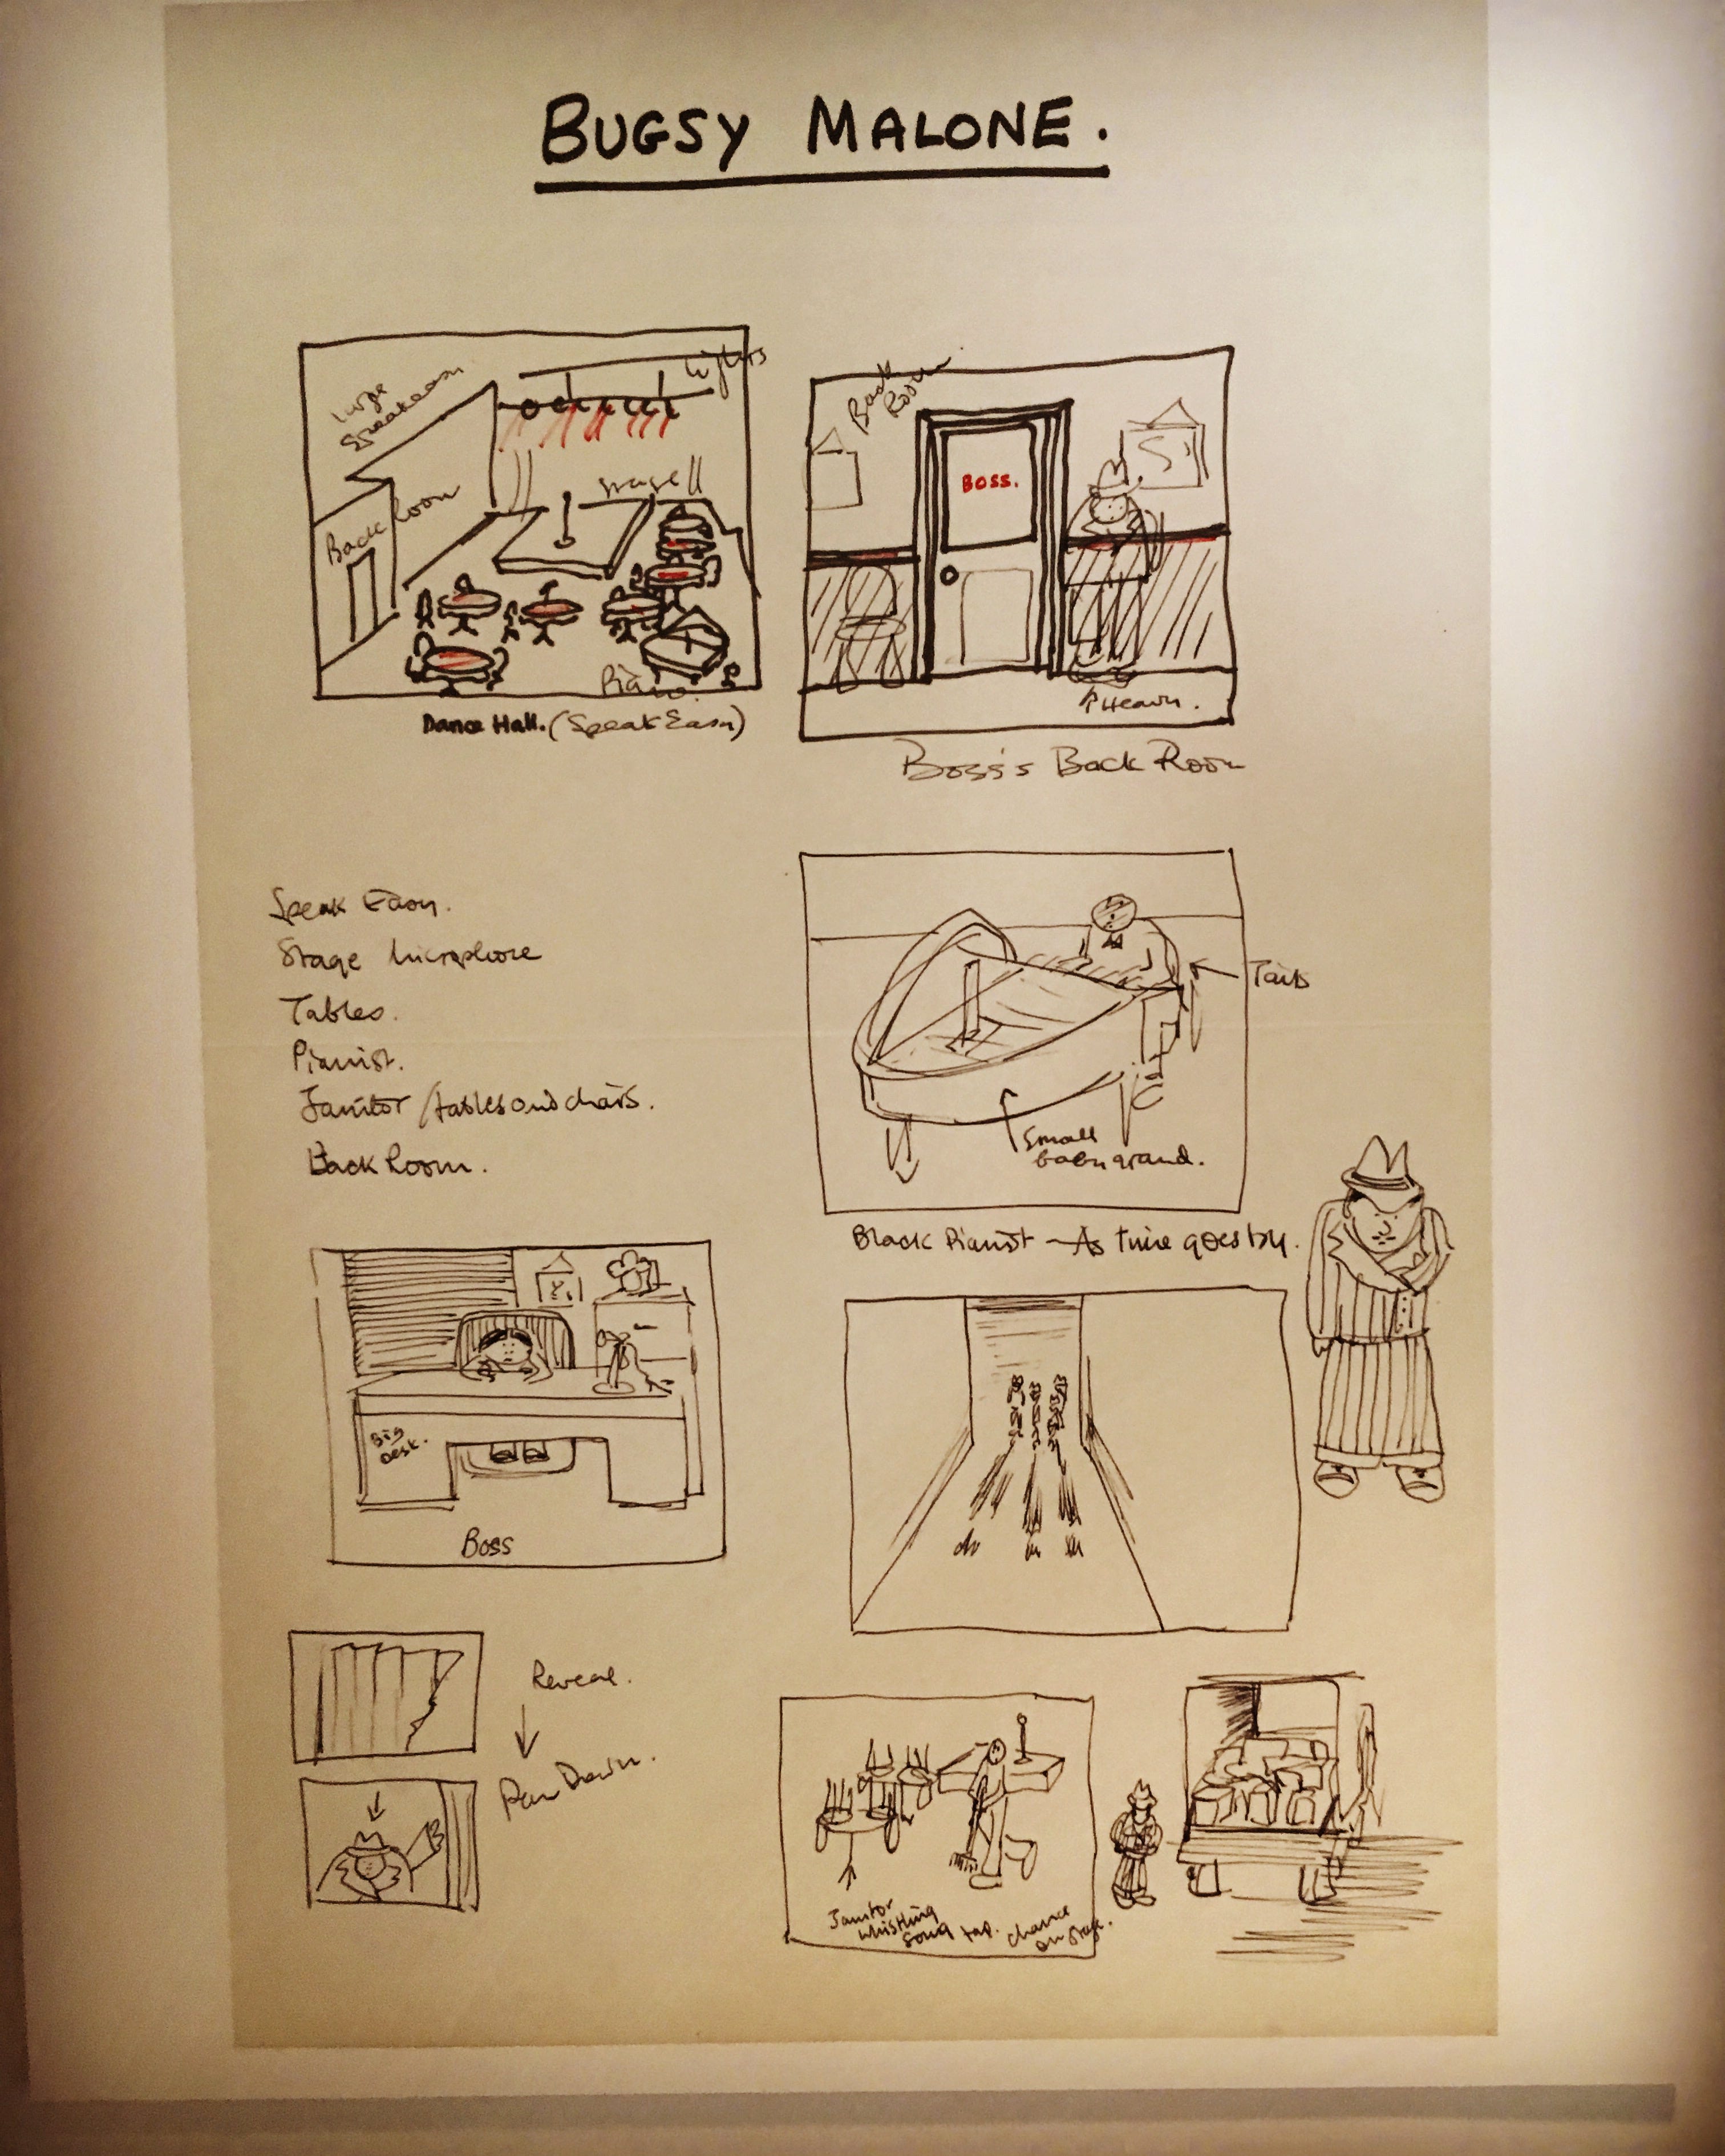 BUGSY MALONE.
Large
Speakeasy
Lights
Back Room
Stage
Piano.
Dance Hall. (Speak Easy)
Back
Room
BOSS.
Heavy.
Boss's Back Room
Speak Easy.
Stage Microphone
Tables.
Pianist.
Janitor / tables and chairs.
Back Room.
Tails
Small
baby grand.
Black Pianist - As time goes by.
Big
Desk.
Boss
Reveal.
Pan Down.
Janitor
whistling
song tap. chance
on stage.